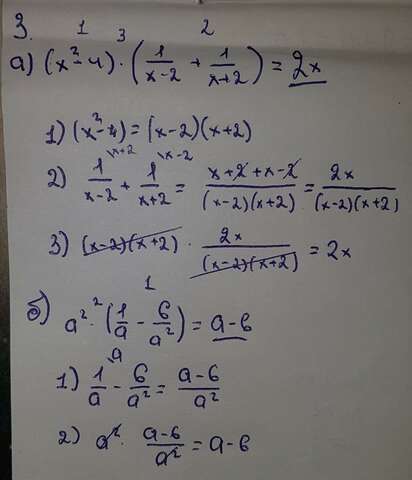 3.
1 3 2
а) (x² - 4) · (1/(x-2) + 1/(x+2)) = 2x
1) (x² - 4) = (x-2)(x+2)
2) 1\x+2/(x-2) + 1\x-2/(x+2) = (x+2+x-2)/((x-2)(x+2)) = 2x/((x-2)(x+2))
3) (x-2)(x+2) · 2x/((x-2)(x+2)) = 2x
2 1
б) a² · (1/a - 6/a²) = a-6
1) 1\a/a - 6/a² = (a-6)/a²
2) a² · (a-6)/a² = a-6